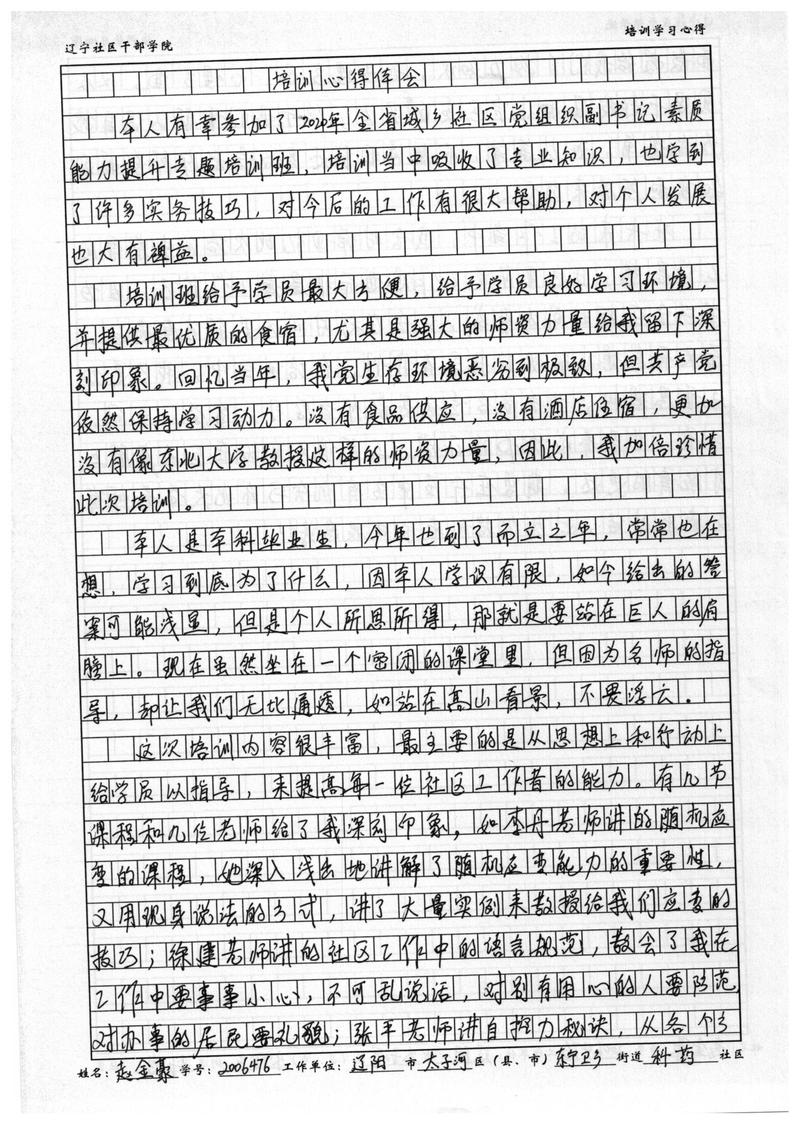 辽宁社区干部学院
培训学习心得
培训心得体会
本人有幸参加了2024年全省城乡社区党组织副书记素质
能力提升专题培训班，培训当中吸收了专业知识，也学到
了许多实务技巧，对今后的工作有很大帮助，对个人发展
也大有裨益。
培训班给予学员最大方便，给予学员良好学习环境，
并提供最优质的食宿，尤其是强大的师资力量给我留下深
刻印象。回忆当年，我党生存环境恶劣到极致，但共产党
依然保持学习动力。没有食品供应，没有酒店住宿，更加
没有像东北大学教授这样的师资力量，因此，我加倍珍惜
此次培训。
本人是本科毕业生，今年也到了而立之年，常常也在
想，学习到底为了什么，因本人学识有限，如今给出的答
案可能浅显，但是个人所思所得，那就是要站在巨人的肩
膀上。现在虽然坐在一个密闭的课堂里，但因为名师的指
导，却让我们无比通透，如站在高山看景，不畏浮云。
这次培训内容很丰富，最主要的是从思想上和行动上
给学员以指导，来提高每一位社区工作者的能力。有几节
课程和几位老师给了我深刻印象，如李丹老师讲的随机应
变的课程，她深入浅出地讲解了随机应变能力的重要性，
又用现身说法的方式，讲了大量实例来教授给我们应变的
技巧；徐建老师讲的社区工作中的语言规范，教会了我在
工作中要事事小心，不可乱说话，对别有用心的人要防范
对办事的居民要礼貌；张平老师讲自控力秘诀，从各个方
姓名：赵金豪 学号：2006476 工作单位：辽阳 市 太子河 区（县、市）东宁卫乡 街道 科药 社区